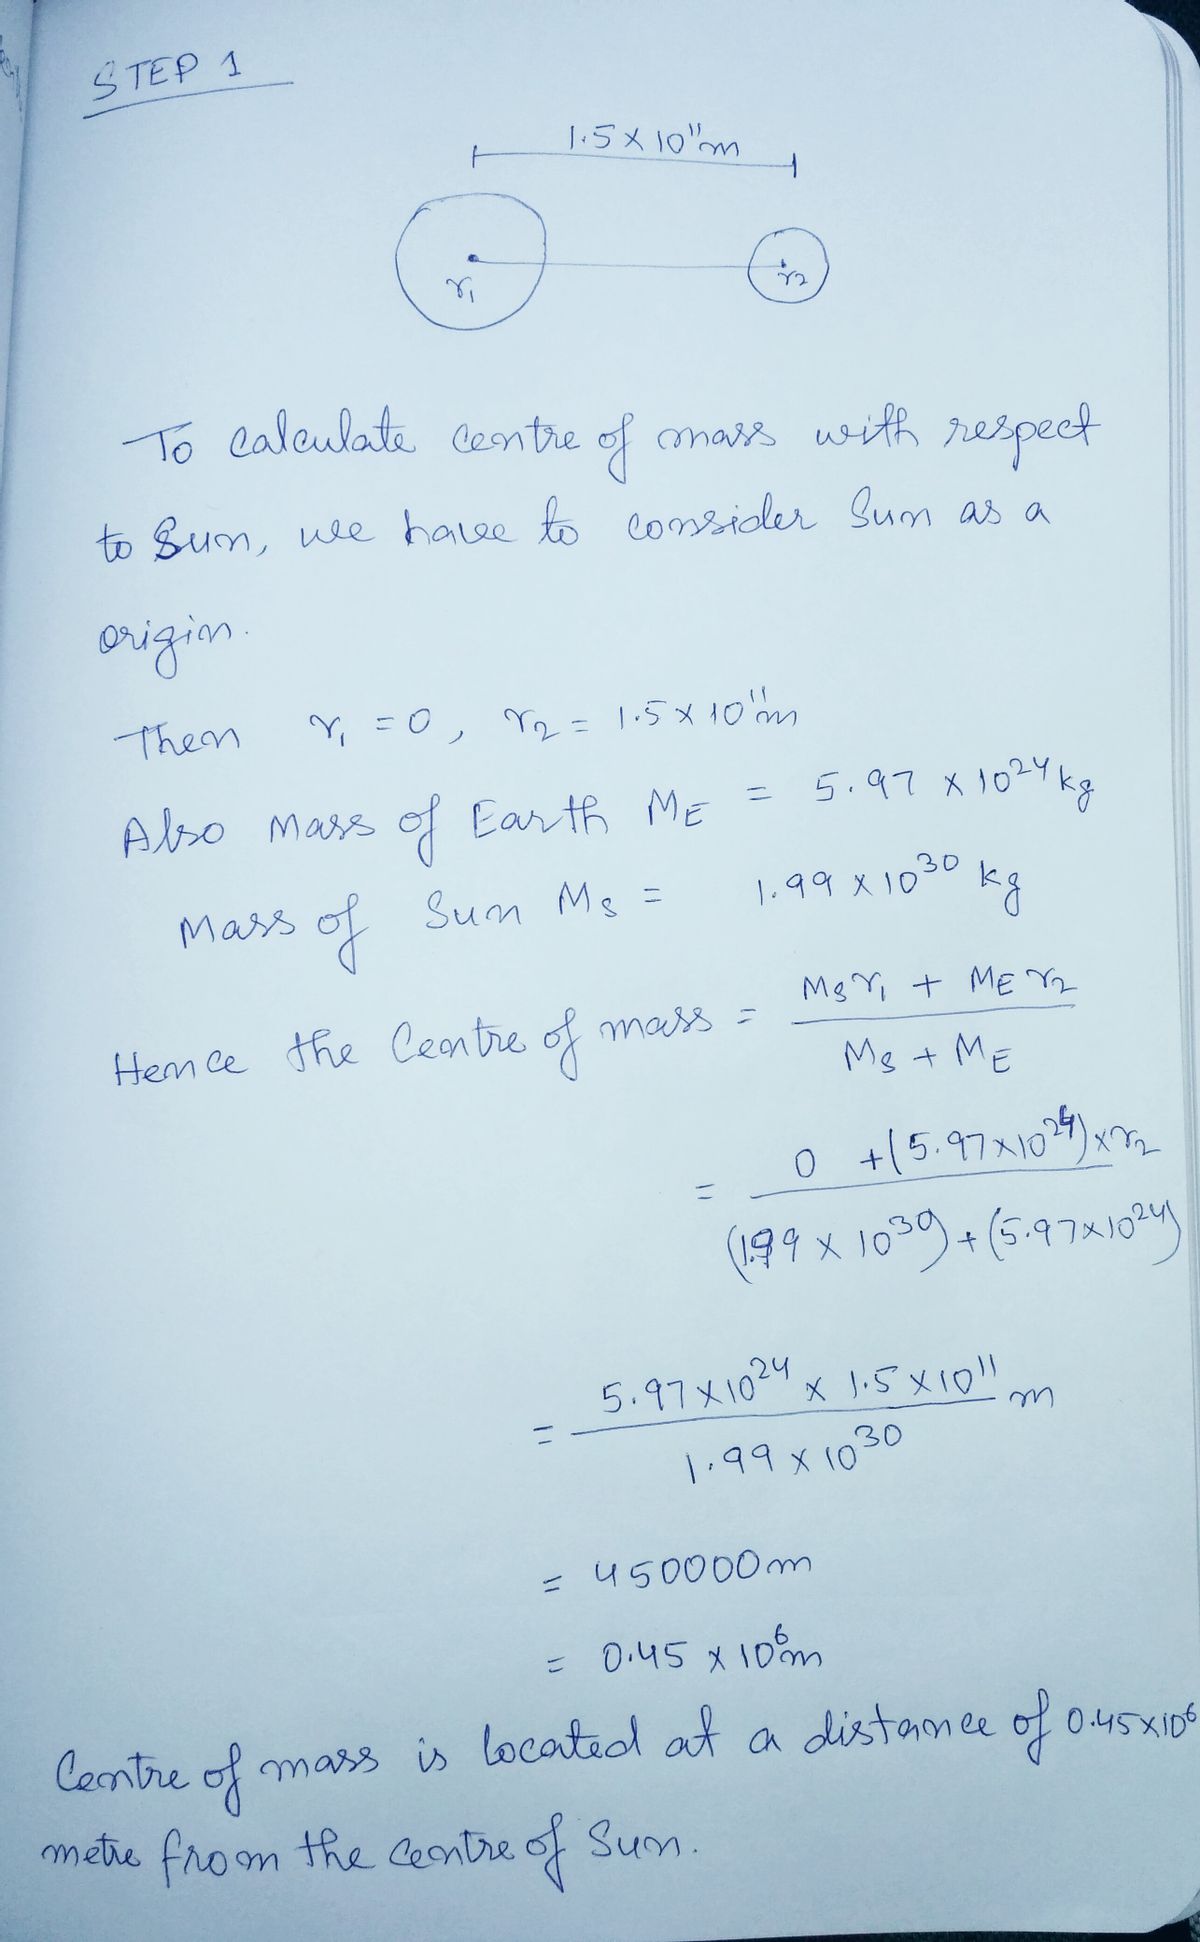 STEP 1
1.5 × 10¹¹m
r₁
r₂
To calculate centre of mass with respect
to Sun, we have to consider Sun as a
origin.
Then r₁ = 0, r₂ = 1.5 × 10¹¹m
Also Mass of Earth M_E = 5.97 × 10²⁴ kg
Mass of Sun M_S = 1.99 × 10³⁰ kg
Hence the Centre of mass = (M_S r₁ + M_E r₂) / (M_S + M_E)
= (0 + (5.97×10²⁴) × r₂) / ((1.99 × 10³⁰) + (5.97×10²⁴))
= (5.97 × 10²⁴ × 1.5 × 10¹¹) / (1.99 × 10³⁰) m
= 450000m
= 0.45 × 10⁶m
Centre of mass is located at a distance of 0.45×10⁶
metre from the centre of Sun.